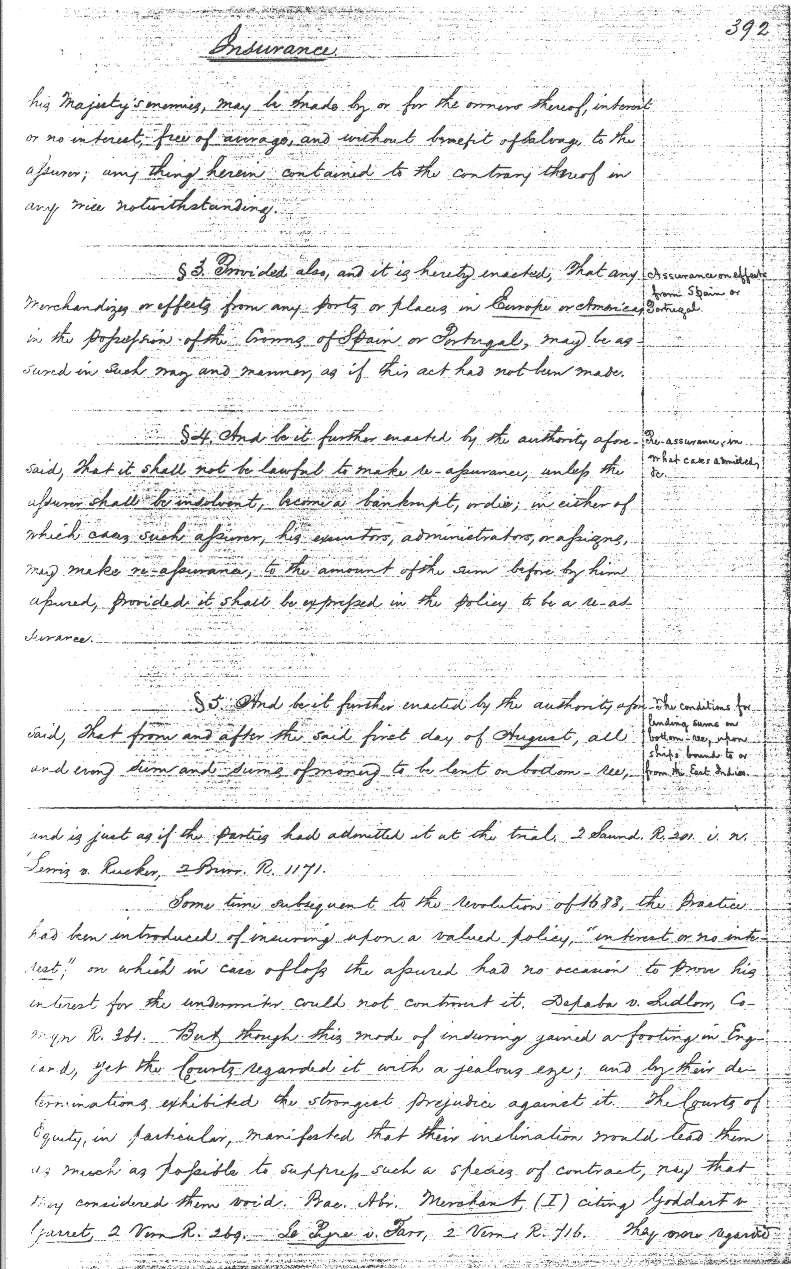 392
Insurance
his Majesty's enemies, may be made by or for the owners thereof, interest
or no interest, free of average, and without benefit of Salvage to the
assurer; any thing herein contained to the contrary thereof in
any wice notwithstanding.
§ 3. Provided also, and it is hereby enacted, That any
Merchandizes or effects from any ports or places in Europe or America,
in the possession of the Crowns of Spain or Portugal, may be as-
sured in such way and manner, as if this act had not been made.
Assurance on effects
from Spain or
Portugal.
§ 4. And be it further enacted by the authority afore-
said, that it shall not be lawful to make re-assurance, unless the
assurer shall be insolvent, become a bankrupt, or die; in either of
which cases such assurer, his executors, administrators, or assigns,
may make re-assurance, to the amount of the sum before by him
assured, provided it shall be expressed in the policy to be a re-as-
surance.
Re-assurance, in
what cases admitted,
&c.
§ 5. And be it further enacted by the authority afore-
said, that from and after the said first day of August, all
and every sum and sums of money to be lent on bottom-ree,
The conditions for
lending sums on
bottom-ree, upon
ships bound to or
from the East Indies.
and is just as if the parties had admitted it at the trial. 2 Saund. R. 201. i. n.
Lewis v. Rucker, 2 Burr. R. 1171.
Some time subsequent to the revolution of 1688, the practice
had been introduced of insuring upon a valued policy, "interest or no inte-
rest;" on which in case of loss the assured had no occasion to prove his
interest for the underwriter could not controvert it. Depaba v. Ludlow, Co-
myn R. 361. But though this mode of insuring gained a footing in Eng-
land, yet the Courts regarded it with a jealous eye; and by their de-
terminations exhibited the strongest prejudice against it. The Courts of
Equity, in particular, manifested that their inclination would lead them
as much as possible to suppress such a species of contract, nay that
they considered them void. Bac. Abr. Merchant, (I) citing Goddart v
Garret, 2 Vern R. 269. Le Pypre v. Farr, 2 Vern. R. 716. They more regarded